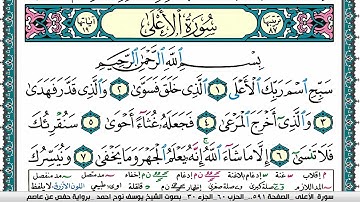 سُورَةُ الْأَعْلَى
بِسْمِ اللَّهِ الرَّحْمَٰنِ الرَّحِيمِ
سَبِّحِ اسْمَ رَبِّكَ الْأَعْلَى ١ الَّذِي خَلَقَ فَسَوَّىٰ ٢ وَالَّذِي قَدَّرَ فَهَدَىٰ
٣ وَالَّذِي أَخْرَجَ الْمَرْعَىٰ ٤ فَجَعَلَهُ غُثَاءً أَحْوَىٰ ٥ سَنُقْرِئُكَ
فَلَا تَنسَىٰ ٦ إِلَّا مَا شَاءَ اللَّهُ إِنَّهُ يَعْلَمُ الْجَهْرَ وَمَا يَخْفَىٰ ٧ وَنُيَسِّرُكَ
سورة الأعلى الصفحة ٥٩١ الحزب ٦٠ الجزء ٣٠ بصوت الشيخ يوسف نوح أحمد برواية حفص عن عاصم